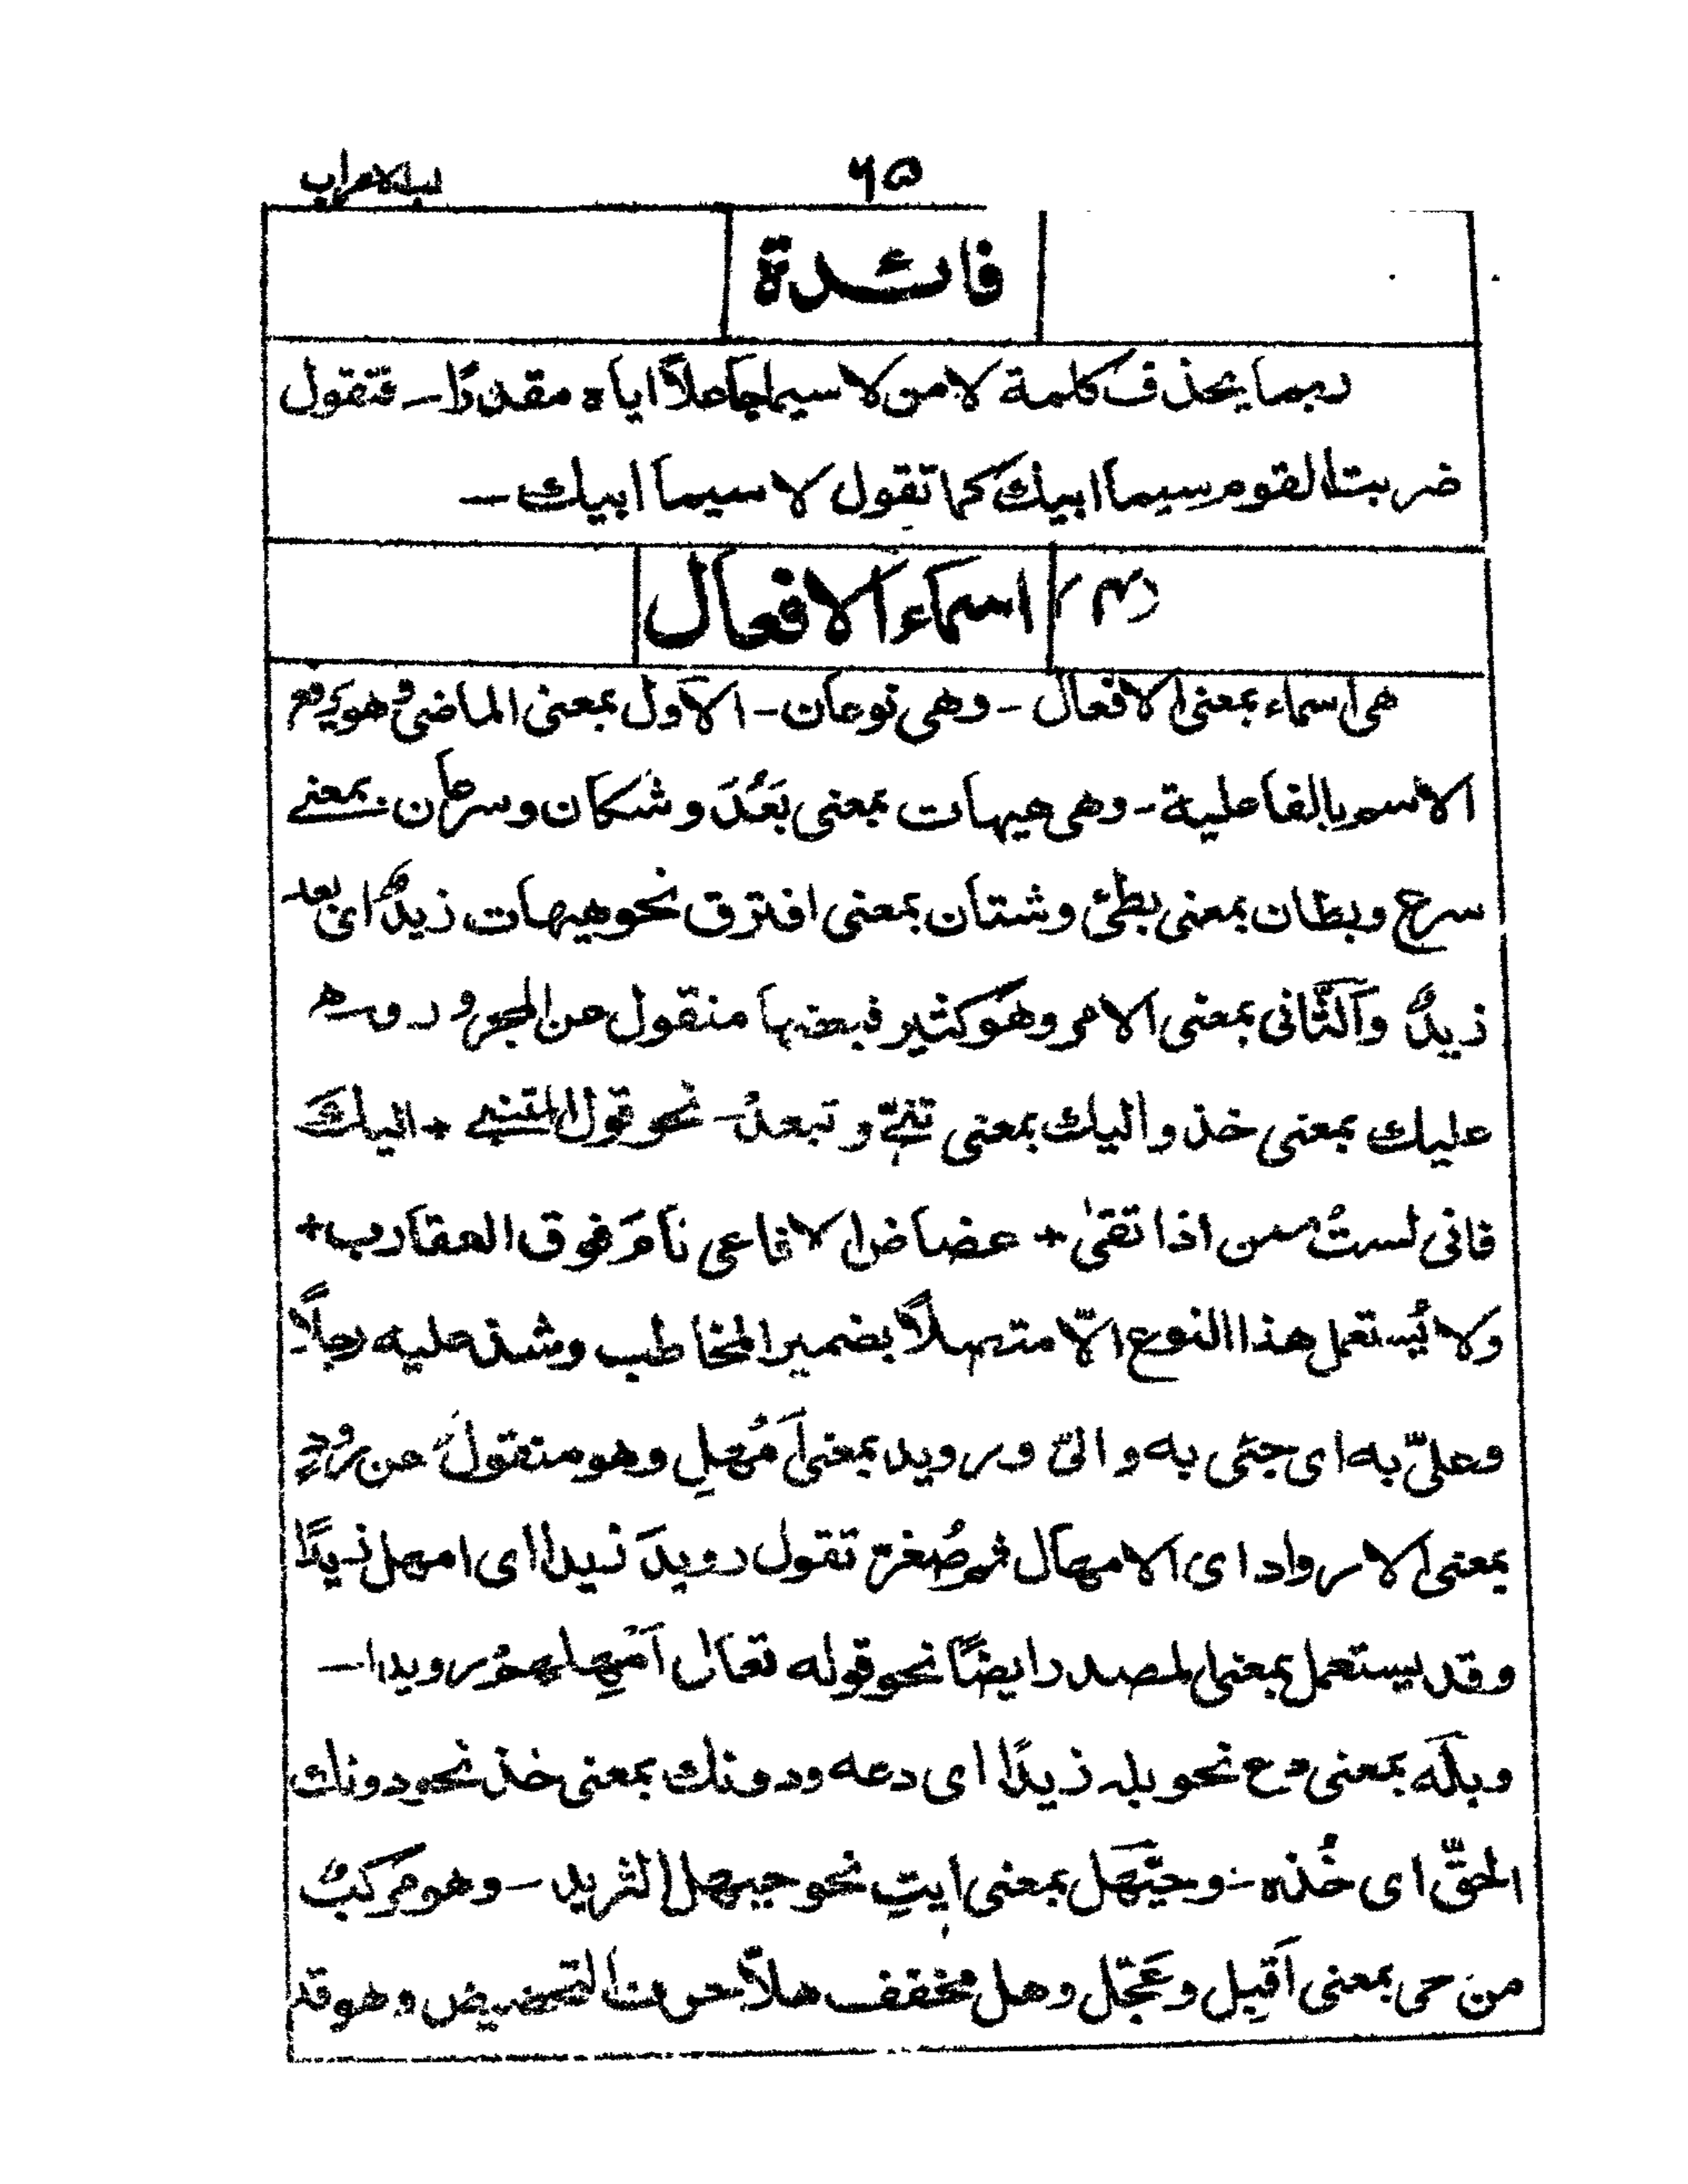 ٦٥
فائدة
ربما يحذف كلمة لا من لا سيما جاعلاً اياه مقدرًا ـ فتقول
ضربت القوم سيما ابيك كما تقول لا سيما ابيك ـ
(٣) اسماء الافعال
هى اسماء بمعنى الافعال ـ وهى نوعان ـ الاوّل بمعنى الماضى وهو يرفع
الاسم بالفاعلية ـ وهى هيهات بمعنى بَعُدَ وشكان وسرعان بمعنے
سرع وبطان بمعنى بطئ وشتان بمعنى افترق نحو هيهات زيدٌ اى بعد
زيدٌ والثّانى بمعنى الامر وهو كثير فبعضها منقول عن المجرور وهـ
عليك بمعنى خذ واليك بمعنى تنحّ وتبعدْ ـ نحو قول المتنبے + اليكَ
فانى لستُ ممن اذا تقىٰ + عضاض الافاعى نامَ فوق العقارب +
ولا يُستعمل هذا النوع الّا متصلاً بضمير المخاطب وشذ عليه رجلًا ـ
وعلىّ به اى جئى به والىّ ورويد بمعنى اَمْهِلِ وهو منقولٌ عن رُودٍ
بمعنى الارواد اى الامهال ثم صُغّر تقول رويدَ زيدا اى امهل زيدًا
وقد يستعمل بمعنى المصدر ايضًا نحو قوله تعالىٰ اَمْهِلهمْ رويدا ـ
وبلهَ بمعنى دع نحو بله زيدًا اى دعه ودونك بمعنى خذ نحو دونك
الحقّ اى خُذه ـ وحيَّهَل بمعنى ايتِ نحو حيهل الثريد ـ وهو مركبٌ
من حى بمعنى اَقبِل وعَجّل وهل مخفف هلّا حرف التحضيض وهو قد